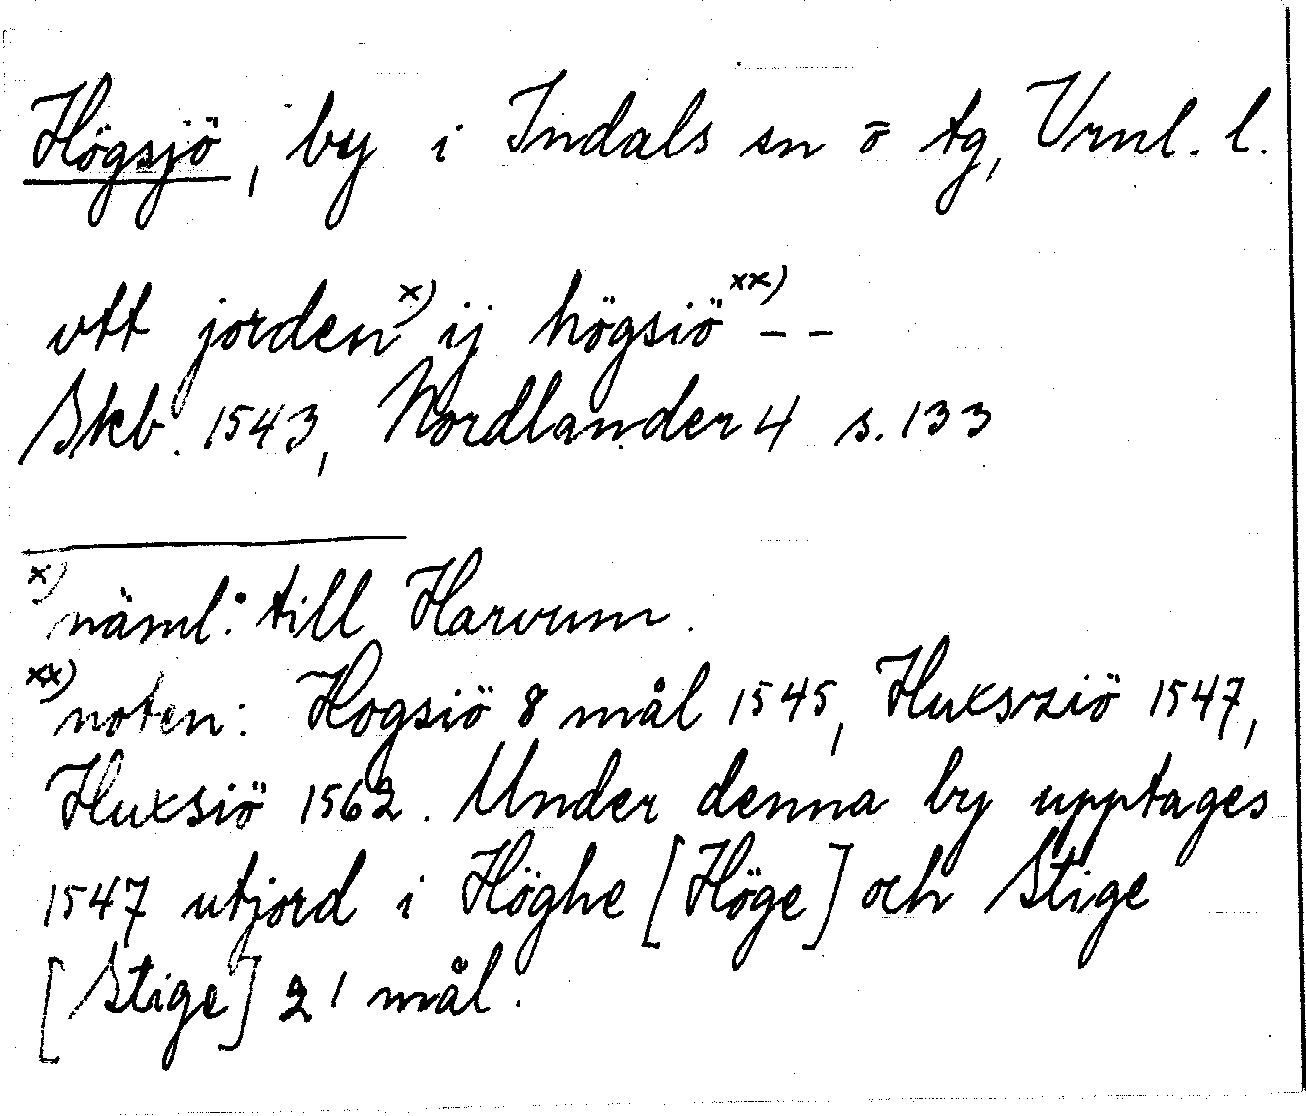 Högsjö, by i Indals sn ō tg, Vrnl. l.
vtt jorden x) ij högsiö xx) - -
Skb. 1543, Nordlander 4 s. 133
x) näml: till Harvum.
xx) noten: Hogsiö 8 mål 1545, Huxsziö 1547,
Huxsiö 1562. Under denna by upptages
1547 utjord i Höghe [Höge] och Stige
[Stige] 2 1 mål.